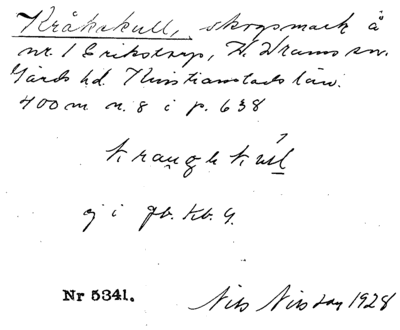 Kråkakull, skogsmark å
nr. 1 Erikstorp, V. Vrams sn.
Gärds hd. Kristianstads län.
400 m n. 8 i p. 638
kraugkkul
ej i gb. Kb. G.
Nr 5341.
Nils Nilsson 1928